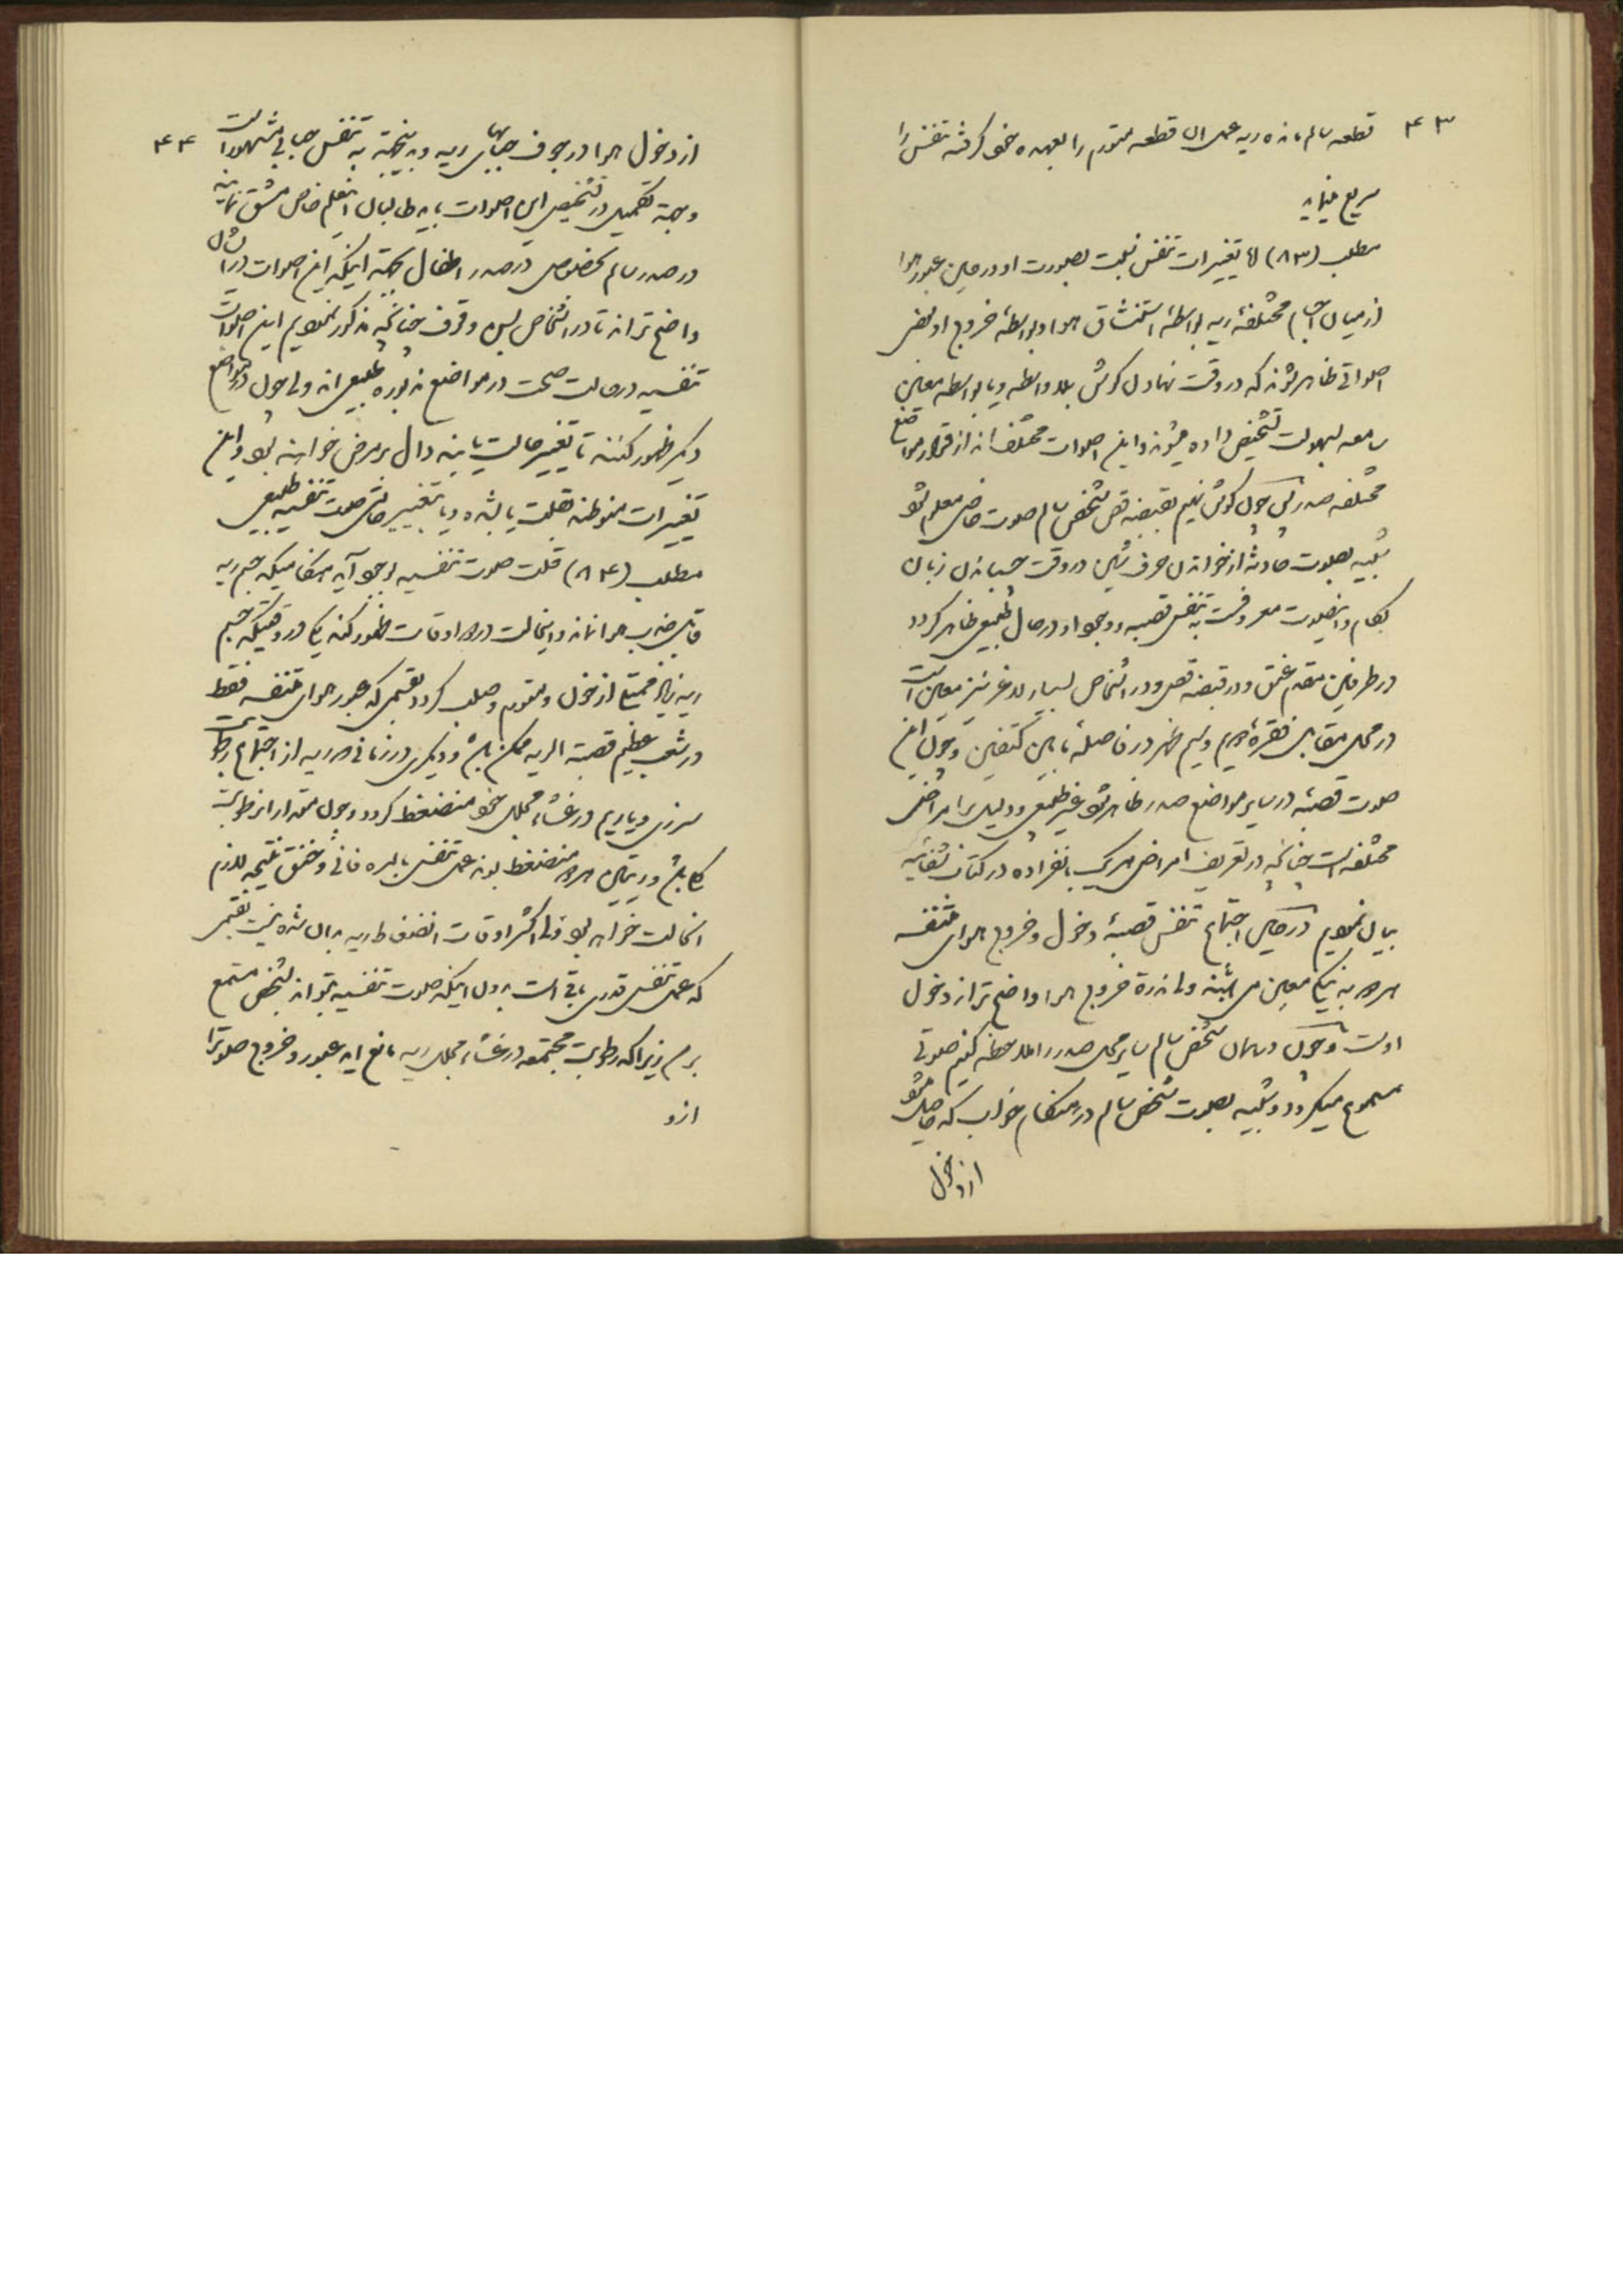 ۴۳
قطعه سالم مانده ریه عمل ان قطعه متورم را بعهده خود گرفته تنفس را
سریع نماید
مطلب (۸۳) اما تغییرات تنفس نسبت بصورت او در حین عبور هوا
از میان اجسام مختلفهٔ ریه بواسطهٔ استنشاق هوا و بواسطهٔ خروج او بعضی
اصواتی ظاهر شوند که در وقت نهادن گوش بلاواسطه و یا بواسطه معین
سامعه بسهولت تشخیص داده میشوند و این اصوات مختلف‌اند از قرار مواضع
مختلفه صدر پس چون گوش نهیم بقصبه قص شخص سالم صوت خاصی معلوم شود
شبیه بصوت حادثه از خواندن حرف شین در وقت چسباندن زبان
بکام و اینصوت معروفست به تنفس قصبه و وجود او در حال طبیعی ظاهر گردد
در طرفین مقدم عنق و در قبضه قص و در اشخاص بسیار لاغر نیز معین است
در محل مقابل فقرهٔ دویم و سیم ظهر در فاصلهٔ مابین کتفین و چون این
صوت قصبهٔ در سایر مواضع صدر ظاهر شود غیر طبیعی و دلیل بر امراض
مختلفه است چنانکه در تعریف امراض هر یک بانفراده در کتاب شفائیه
بیان نمودیم در حین اجتماع تنفس قصبهٔ دخول و خروج هوای متنفسه
هر دو به یکم معین می باشند ولی ندرة خروج هوا واضح تر از دخول
اوست و چون در همان شخص سالم سایر محل صدر را ملاحظه کنیم صوتی
مسموع میگردد و شبیه بصوت شخص سالم در هنگام خواب که حاصل شود
از دخول
۴۴
از دخول هوا در جوف حبابهای ریه و بدینجهة به تنفس حبابی مشهور است
و بجهة تکمیل در تشخیص این اصوات باید طالبان اینعلم خاص مشق نمایند
در صدر سالم بخصوص در صدر اطفال بجهة اینکه این اصوات در ایشان
واضح تراند تا در اشخاص بسن وقوف چنانکه مذکور نمودیم این اصوات
تنفسیه در حالت صحت در مواضع مذبوره طبیعی اند ولی چون در مواضع
دیگر ظهور کنند تا تغییر حالت یابند دال بر مرض خواهند بود و این
تغییرات منوط‌ند بقلت یا بشده و یا بتغییر خاص صوت تنفسیه طبیعی
مطلب (۸۴) قلت صوت تنفسیه بوجود آید هنگامیکه جسم ریه
قابل ضرب هوا نماند و اینحالت در دو اوقات ظهور کند یکی در وقتیکه جسم
ریه زیاده ممتلی از خون و متورم و صلب گردد بقسمی که عبور هوای متنفسه فقط
در شعب عظیم قصبة الریه ممکن باشد و دیگری در زمانی که ریه از اجتماع رطوبت
سرزی و یا ریم در غشاء مجلل خود منضغط گردد و چون مقدار این رطوبت
کلی باشد و ریتین هر دو منضغط بودند عمل تنفس بالمره فانی و خنق نتیجه لازم
انحالت خواهد بود ولی اکثر اوقات انضغاط ریه بدان شده نیست بقسمی
که عمل تنفس قدری باقی است بدون اینکه صوت تنفسیه بتواند بشخص مستمع
برسد زیرا که رطوبت مجتمعه در غشاء مجلل ریه مانع اید عبور و خروج صوت را
ازو